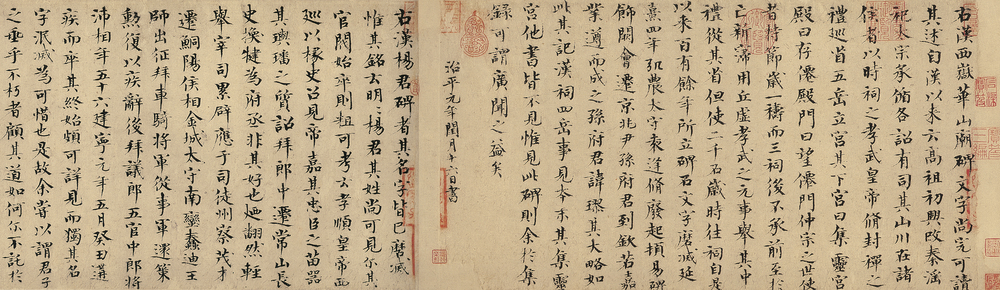 右漢西嶽華山廟碑文字尚完可讀
其述自漢以来云高祖初興改秦淫
祀太宗承循各詔有司其山川在諸
侯者以時祠之孝武皇帝脩封禪之
禮巡省五岳立宮其下宮曰集靈宮
殿曰存僊殿門曰望僊門仲宗之世使
者持節歲禱而三祠後不承前至於
亡新寖用丘虛孝武之元事舉其中
禮從其省但使二千石歲時往祠自是
以来百有餘年所立碑石文字磨滅延
熹四年弘農太守袁逢脩廢起頓易碑
飾闕會遷京兆尹孫府君到欽若嘉
業遵而成之孫府君諱璆其大略如
此其記漢祠四岳事見本末其集靈
宮他書皆不見惟見此碑則余於集
錄可謂廣聞之益矣
治平元年閏月十六日書
右漢楊君碑者其名字皆已磨滅
惟其銘云明明楊君其姓尚可見尔其
官閥始卒則粗可考云孝順皇帝西
巡以掾史召見帝嘉其忠臣之苗器
其璵璠之質詔拜郎中遷常山長
史換犍為府丞非其好也迺翻然輕
舉宰司累辟應于司徒州察茂才
遷鮦陽侯相金城太守南蠻蠢迪王
師出征拜車騎將軍從事軍還策
勲復以疾辭後拜議郎五官中郎將
沛相年五十六建寧元年五月癸丑遘
疾而卒其終始頗可詳見而獨其名
字泯滅為可惜也是故余嘗以謂君子
之垂乎不朽者顧其道如何尔不託於